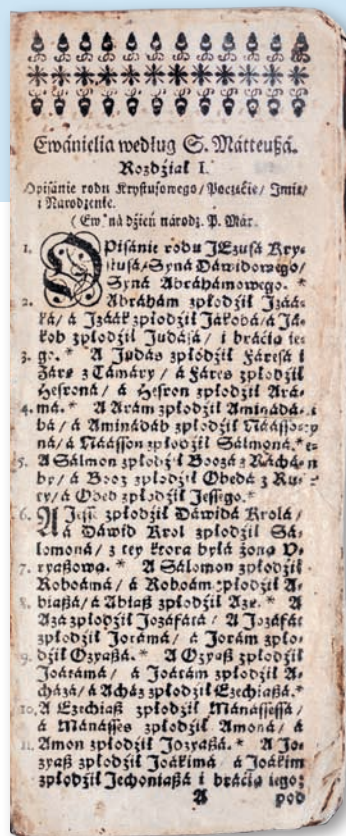 Ewánielia według S. Mátteuszá.
Rozdział I.
Opisánie rodu Krystusowego/ Poczęcie/ Imię/
i Narodzenie.
(Ew. ná dźień národz. P. Már.
1. OPisánie rodu JEzusá Kry-
stusá/ Syná Dáwidowego/
Syná Abráhámowego. *
2. Abráhám zpłodźił Izáá-
ká/ á Izáák zpłodźił Jákobá/ á Já-
kob zpłodźił Judásá/ i bráćią ie-
3. go. * A Judás zpłodźił Fáresá i
Zárę z Támáry/ á Fáres zpłodźił
Hesroná/ á Hesron zpłodźiłArá-
4. má. * A Arám zpłodźił Aminádá-
bá/ á Aminádáb zpłodźił Náásso-
ná/ á Náásson zpłodźił Sálmoná. *
5. A Sálmon zpłodźił Boozá z Rácháb
by/ á Booz zpłodźił Obedá z Ru-
ty/ á Obed zpłodźił Jessego. *
6. A Jesse zpłodźił Dáwidá Krolá/
á Dáwid Krol zpłodźił Sá-
lomoná/ z tey ktora byłá żoną U-
7. ryaszową. * A Sálomon zpłodźił
Roboámá/ á Roboám zpłodźił A-
8. biaszá/ á Abiasz zpłodźił Azę. * A
Azá zpłodźił Jozáfátá/ á Jozáfát
zpłodźił Jorámá/ á Jorám zpło-
9. dźił Ozyaszá. * A Ozyasz zpłodźił
Joátámá/ á Joátám zpłodźił A-
cházá/ á Acház zpłodźił Ezechiaszá. *
10. A Ezechiasz zpłodźił Mánássesá/
á Mánásses zpłodźił Amoná/ á
11. Amon zpłodźił Jozyaszá. * A Jo-
zyasz zpłodźił Joákimá/ á Joákim
zpłodźił Jechoniaszá i bráćią iego;
A pod